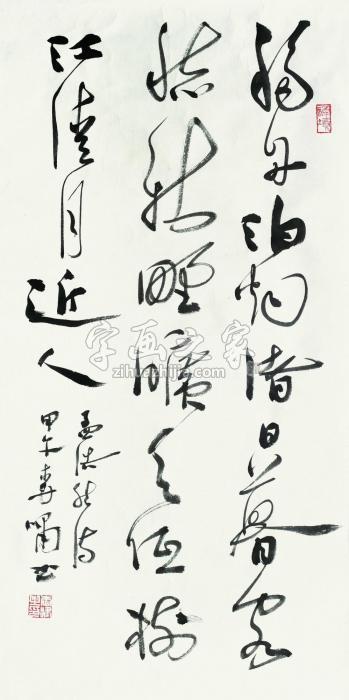 移舟泊烟渚日暮客
愁新野曠天低樹
江清月近人
孟浩然诗
甲午春嘯书
字画之家
zihuazhijia.com